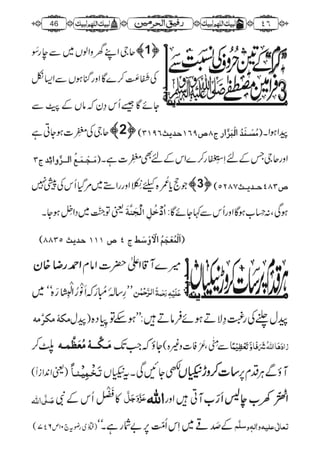 46 لبیك اللھم لبیك رفیق الحرمین لبیك اللھم لبیك ٤٦
”مکّہ“ کے تین حُرُوف کی نسبت سے
3 فرامینِ مصطفٰے صلی اللہ علیہ والہ وسلم
﴿1﴾ حاجی اپنے گھر والوں میں سے چار سو
کی شَفاعت کرے گا اور گناہوں سے ایسا نکل
جائے گا جیسے اُس دِن کہ ماں کے پیٹ سے
پیدا ہوا۔ (مُسْنَدُ الْبَزَّار ج٨ ص١٦٩ حديث ٣١٩٦) ﴿2﴾ حاجی کی مغفِرت ہو جاتی ہے
اور حاجی جس کے لئے اِستِغفار کرے اس کے لئے بھی مغفِرت ہے۔ (مَجْمَعُ الزَّوائِد ج ٣
ص ٤٨٣ حديث ٥٢٨٧) ﴿3﴾ جو حج یا عمرہ کیلئے نکلا اور راستے میں مر گیا اُس کی پیشی نہیں
ہو گی، نہ حساب ہو گا اور اُس سے کہا جائے گا: اُدْخُلِ الْجَنَّةَ یعنی تو جنّت میں داخِل ہو جا۔
(اَلْمُعْجَمُ الْاَوْسَط ج ٤ ص ١١١ حديث ٨٨٣٥)
ہر قدم پر سات کروڑ نیکیاں
میرے آقا اعلیٰ حضرت امام احمد رضا خان
عَلَيْهِ رَحْمَةُ الرَّحْمٰن ”رسالہ مبارکہ اَنوارُ البِشارَہ“ میں
پیدل چلنے کی رغبت دلاتے ہوئے فرماتے ہیں: ”ہو سکے تو پیادہ (پیدل مکّۂ مکرّمہ
زادَهَا اللهُ شَرَفًا وَّ تَعْظِيْمًا سے منٰی، عَرَفات وغیرہ) جاؤ کہ جب تک مکّۂ مُعَظَّمہ پلٹ کر
آؤ گے ہر قدم پر سات کروڑ نیکیاں لکھی جائیں گی۔ یہ نیکیاں تخمیناً (یعنی اندازاً)
اٹھتّر کھرب چالیس اَرَب آتی ہیں اور اللہ عَزَّوَجَلَّ کا فضل اُس کے نبی صَلَّی اللہُ
تعالٰی علیہ والہٖ وسلَّم کے صَدقے میں اِس اُمّت پر بے شمار ہے۔“ (فتاوٰی رضویہ ج١٠ ص٧٤٦)